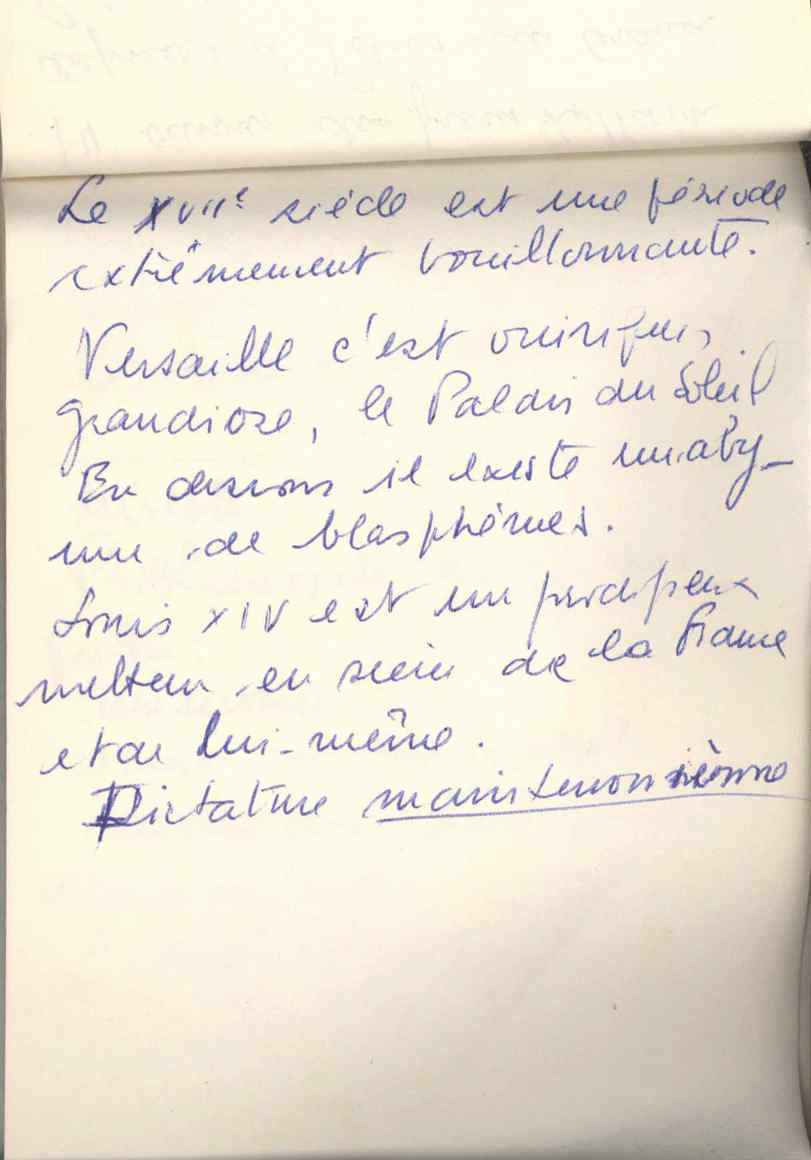 Le XVIIe siècle est une période
extrêmement bouillonnante.
Versaille c'est onirique,
grandiose, le Palais du Soleil
En dessous il existe un aby-
me de blasphèmes.
Louis XIV est un prodigieux
metteur en scène de la France
et de lui-même.
Dictature maintenonnienne